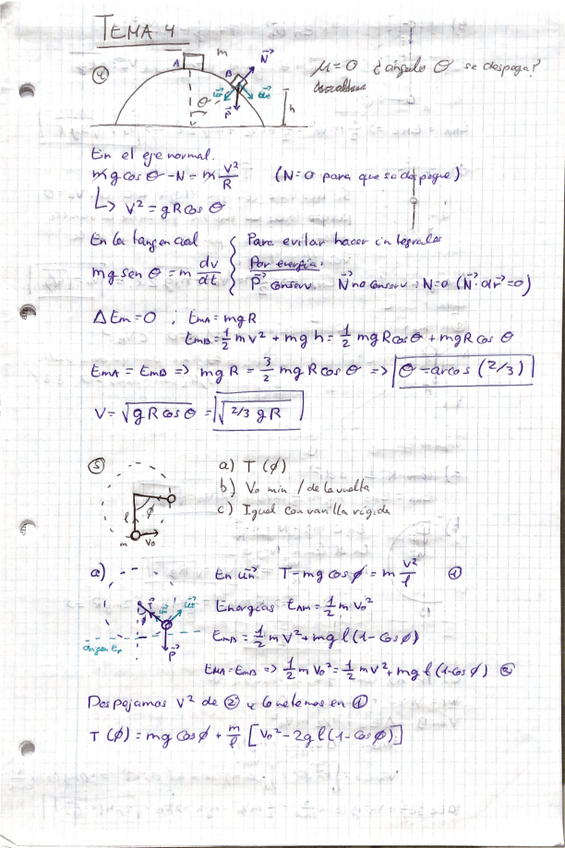 TEMA 4
④ A m B N⃗ θ P⃗ h μ=0 ¿ángulo θ se despega?
En el eje normal.
mg cos θ - N = m v²/R (N=0 para que se despegue)
↳ v² = gR cos θ
En la tangencial { Para evitar hacer integrales
mg sen θ = m dv/dt { Por energía:
P⃗ conserv. N⃗ no conserv : N=0 (N⃗·dr⃗=0)
ΔEm=0 ; EmA = mgR
EmB = 1/2 mv² + mgh = 1/2 mgR cos θ + mgR cos θ
EmA = EmB => mgR = 3/2 mgR cos θ => θ = arcos (2/3)
V = √(gR cos θ) = √(2/3 gR)
⑤ l φ m v₀ a) T(φ)
b) V₀ min / de la vuelta
c) Igual con varilla rígida
a) En u⃗n T - mg cos φ = m v²/l ①
T⃗ P⃗ origen Ep Energías EAM = 1/2 m v₀²
EmB = 1/2 mv² + mgl(1-cos φ)
EMA = EmB => 1/2 m v₀² = 1/2 mv² + mgl(1-cos φ) ②
Despejamos v² de ② y lo metemos en ①
T(φ) = mg cos φ + m/l [v₀² - 2gl(1-cos φ)]